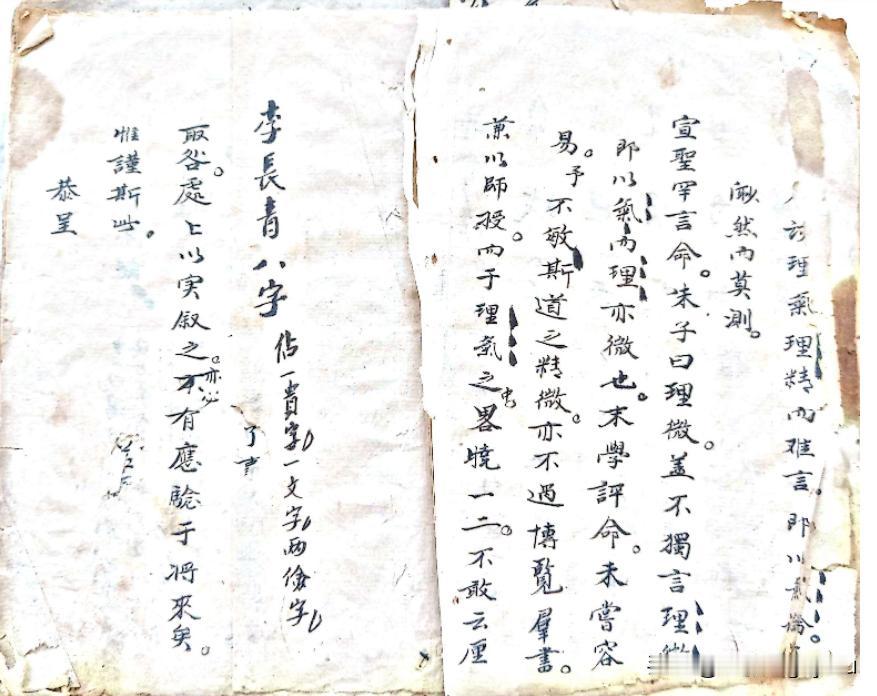 於理氣理精而难言。即以氣論。
渺然而莫測。
宣聖罕言命。朱子曰理微。盖不獨言理微
即以氣而理亦微也。末學評命。未嘗容
易。予不敏斯道之精微。亦不過博覧羣書。
兼以師授。而于理氣之中畧曉一二。不敢云厘
李長青八字 佔一貴字一文字两儉字
了事
取咎處上以实叙之。亦必有應驗于将來矣。
惟謹斯此。
恭呈